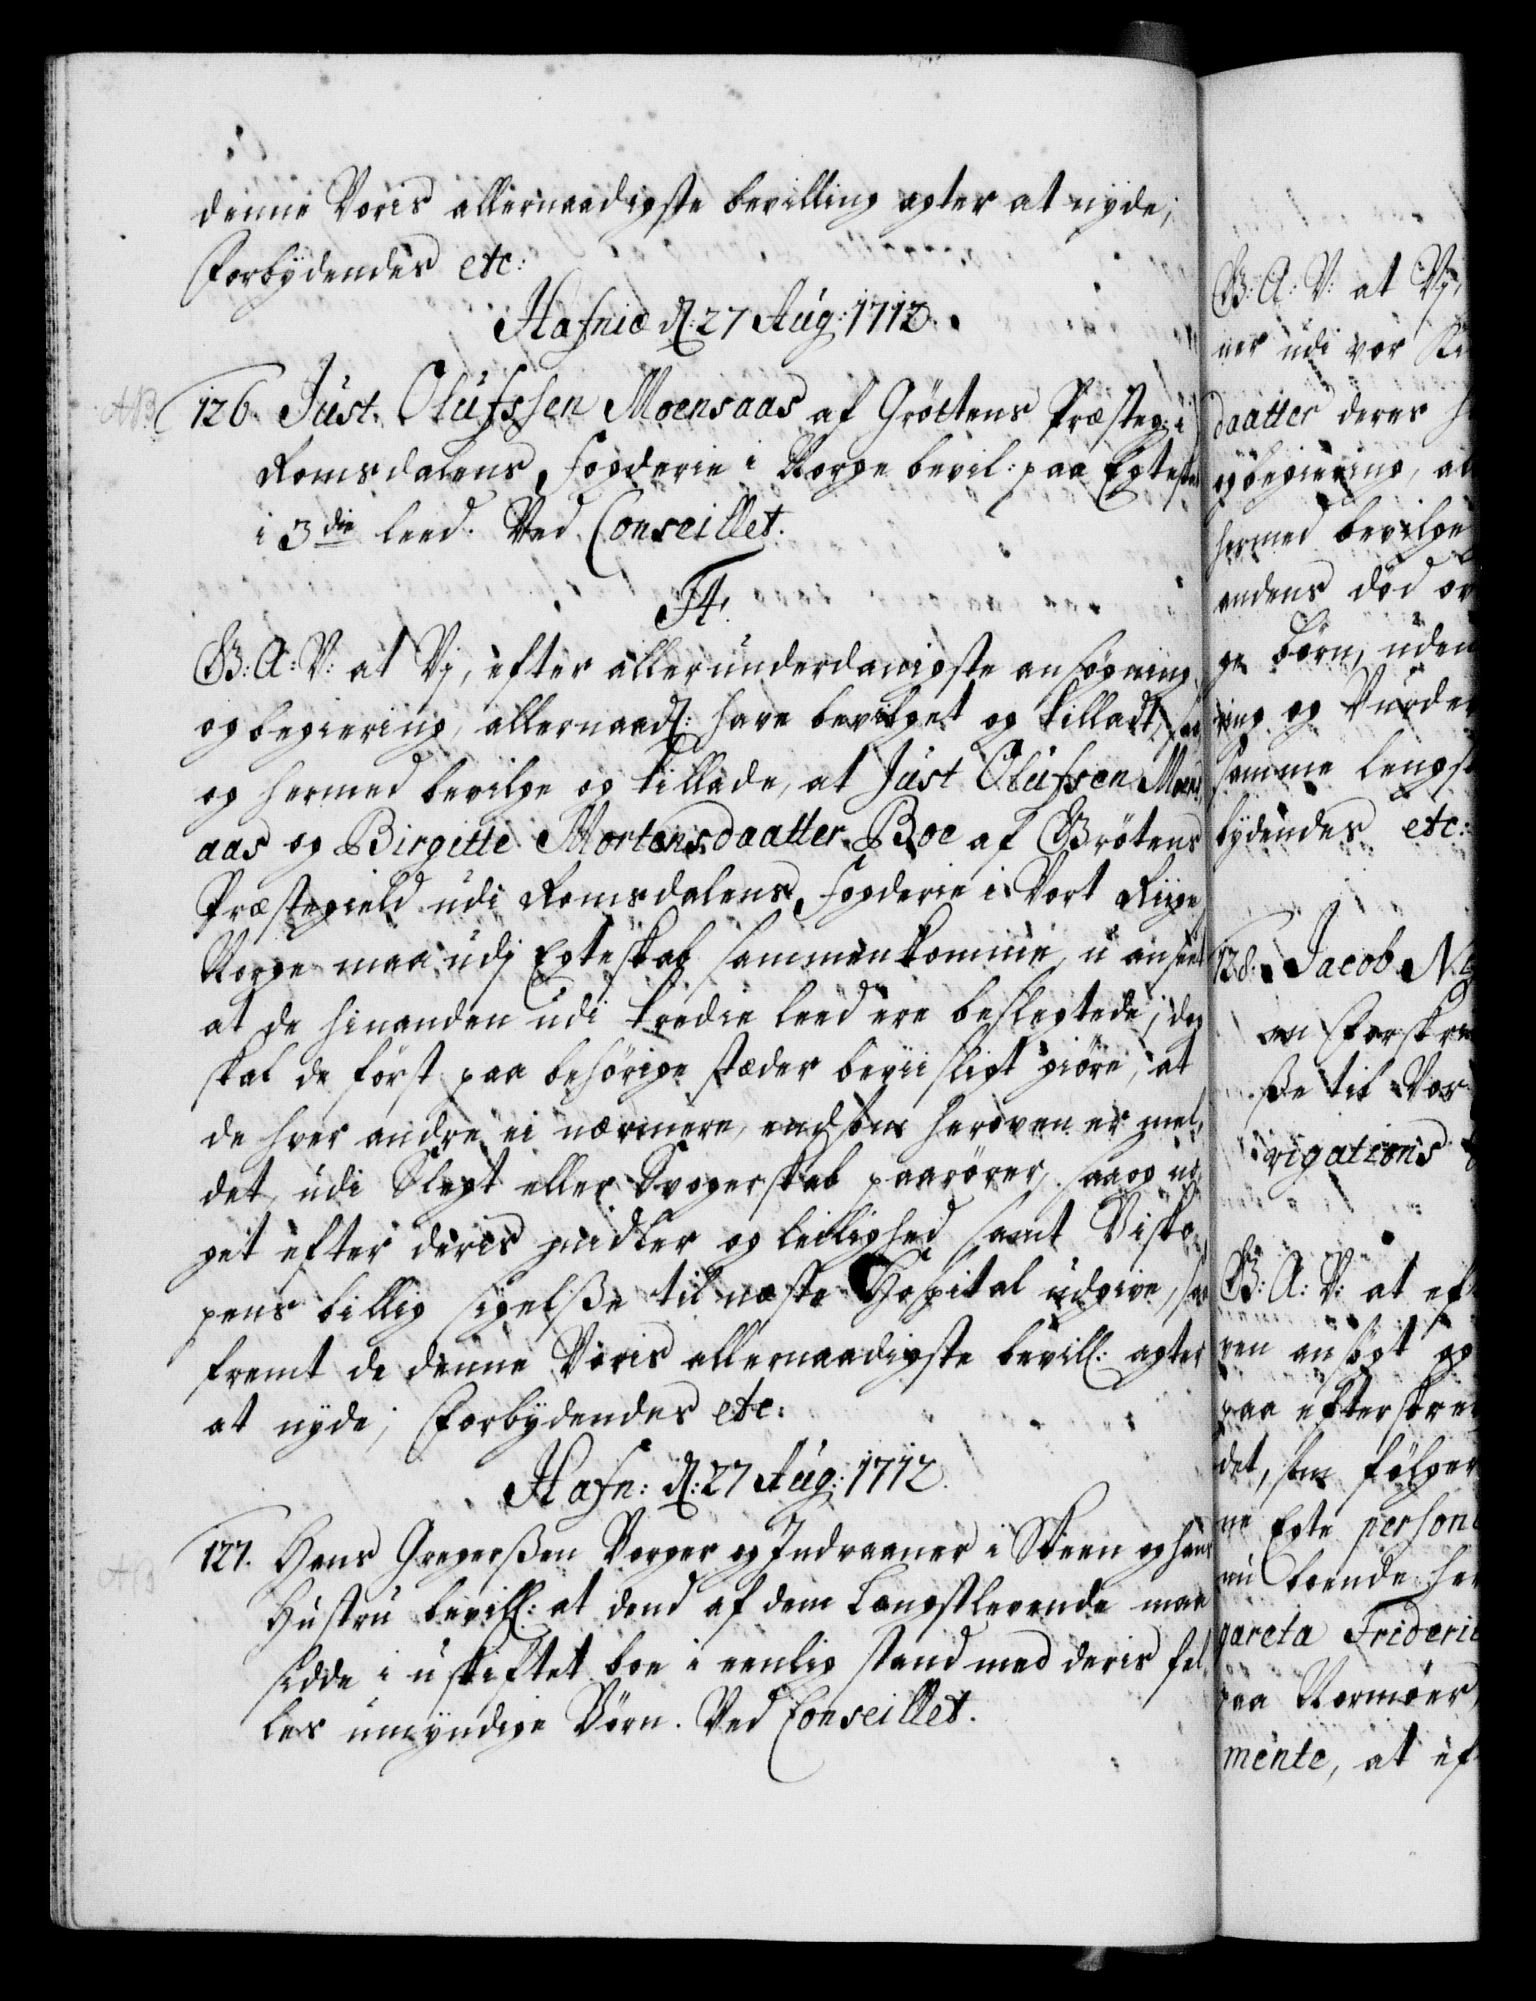 denne Voris allernaadigste bevilling agter at nyde;
Forbydendes etc:
Hafniæ d: 27 Aug: 1712.
126. Just Olufssen Moensaas af Gröttens Præsteg: i
Romsdalens Fogderie i Norge bevil: paa Egtesk:
i 3die leed. Ved Conseillet.
F4.
G: A: V: at Vj, efter allerunderdanigste ansøgning
og begiering, allernaad: have bevilget og tilladt, saa
og hermed bevilge og tillade, at Just Olufsen Moens
aas og Birgitte Mortensdaatter Boe af Grötens
Præstegield udi Romsdalens Fogderie i Vort Rige
Norge maa udj Egteskab sammenkomme, u anseet
at de hinanden udi tredie leed ere beslegtede; dog
skal de först paa behörige stæder beviisligt giöre, at
de hver andre ei nærmere, end som heroven er mel,
det, udi Slegt eller Svogerskab paarörer, saa og no,
get efter deris midler og leilighed samt Bisko,
pens billig sigelsße til næste Hospital udgive, saa
fremt de denne Voris allernaadigste bevill: agter
at nyde; Forbydendes etc:
Hafn: d: 27 Aug: 1712.
127. Hans Gregerßen Borger og Indvaaner i Skeen og hans
Hustru bevill: at dend af dem Længstlevende maa
sidde i uskiftet boe i eenlig stand med deris fel,
les umyndige Börn. Ved Conseillet.
G: A: V: at Vj,
ner udi vor
daatter deres
og begiering, al
hermed bevilge
andens död
ge börn, uden
ring og Vurder
samme lengst
bydendes etc:
128. Jacob
en Forskri
ße til Vor
vigations
G: A: V: at ef
ren ansögt og
paa efterskre
det, som fölger
ne Egte person
nu boende her
gareta Frideric
paa Normöer
mente, at ef